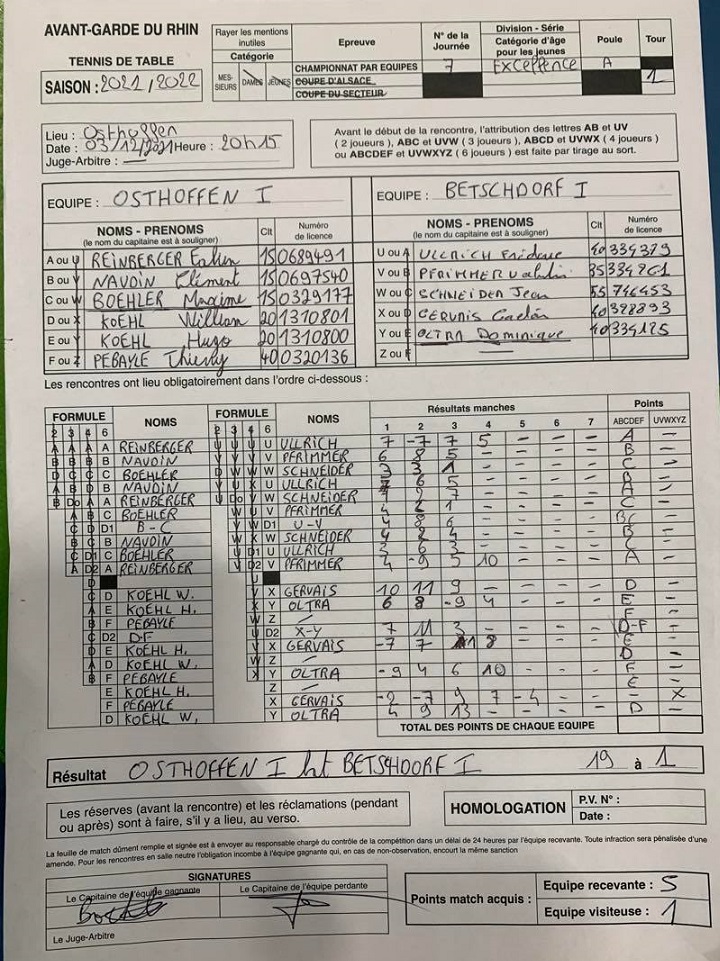 AVANT-GARDE DU RHIN
TENNIS DE TABLE
SAISON : 2021 / 2022
Rayer les mentions inutiles
Catégorie
MES-SIEURS DAMES JEUNES
Epreuve
CHAMPIONNAT PAR EQUIPES
COUPE D'ALSACE
COUPE DU SECTEUR
N° de la Journée
7
Division - Série
Catégorie d'âge pour les jeunes
Excellence
Poule
A
Tour
1
Lieu : Osthoffen
Date : 03/12/2021 Heure : 20h15
Juge-Arbitre : —
Avant le début de la rencontre, l'attribution des lettres AB et UV
( 2 joueurs ), ABC et UVW ( 3 joueurs ), ABCD et UVWX ( 4 joueurs )
ou ABCDEF et UVWXYZ ( 6 joueurs ) est faite par tirage au sort.
EQUIPE : OSTHOFFEN I
EQUIPE : BETSCHDORF I
NOMS - PRENOMS (le nom du capitaine est à souligner) Clt Numéro de licence
A ou U REINBERGER 15 0689491
B ou V NAUDIN Clément 15 0697540
C ou W BOEHLER Maxime 15 0329177
D ou X KOEHL William 20 1310801
E ou Y KOEHL Hugo 20 1310800
F ou Z PEBAYLE Thierry 40 0320136
NOMS - PRENOMS (le nom du capitaine est à souligner) Clt Numéro de licence
U ou A ULLRICH 40 334379
V ou B PFRIMMER Valentin 35 334261
W ou C SCHNEIDER Jean 55 746453
X ou D GERVAIS Gaetan 40 328893
Y ou E OLTRA Dominique 40 334125
Z ou F —
Les rencontres ont lieu obligatoirement dans l'ordre ci-dessous :
FORMULE NOMS FORMULE NOMS Résultats manches Points
2 3 4 6 2 3 4 6 1 2 3 4 5 6 7 ABCDEF UVWXYZ
A REINBERGER U ULLRICH 7 -7 7 5 - - - A -
B NAUDIN V PFRIMMER 6 8 5 - - - - B -
C BOEHLER W SCHNEIDER 3 3 1 - - - - C -
B NAUDIN U ULLRICH 7 6 5 - - - - B -
A REINBERGER W SCHNEIDER 9 2 7 - - - - A -
C BOEHLER V PFRIMMER 4 2 1 - - - - C -
D1 B-C D1 U-V 4 8 6 - - - - BC -
B NAUDIN W SCHNEIDER 4 2 4 - - - - B -
C BOEHLER U ULLRICH 3 6 3 - - - - C -
A REINBERGER V PFRIMMER 4 -9 5 10 - - - A -
D KOEHL W. X GERVAIS 10 11 9 - - - - D -
E KOEHL H. Y OLTRA 6 8 -9 4 - - - E -
F PEBAYLE Z — F -
D2 D-F D2 X-Y 7 11 3 - - - - D-F -
E KOEHL H. X GERVAIS -7 7 11 8 - - - E -
D KOEHL W. Z — D -
F PEBAYLE Y OLTRA -9 4 6 10 - - - F -
E KOEHL H. Z — E -
F PEBAYLE X GERVAIS -2 -7 9 7 -4 - - - X
D KOEHL W. Y OLTRA 4 9 13 - - - - D -
TOTAL DES POINTS DE CHAQUE EQUIPE
Résultat OSTHOFFEN I bat BETSCHDORF I 19 à 1
Les réserves (avant la rencontre) et les réclamations (pendant
ou après) sont à faire, s'il y a lieu, au verso.
HOMOLOGATION
P.V. N° :
Date :
La feuille de match dûment remplie et signée est à envoyer au responsable chargé du contrôle de la compétition dans un délai de 24 heures par l'équipe recevante. Toute infraction sera pénalisée d'une
amende. Pour les rencontres en salle neutre l'obligation incombe à l'équipe gagnante qui, en cas de non-observation, encourt la même sanction
SIGNATURES
Le Capitaine de l'équipe gagnante
Le Capitaine de l'équipe perdante
Le Juge-Arbitre
Points match acquis :
Equipe recevante : 5
Equipe visiteuse : 1